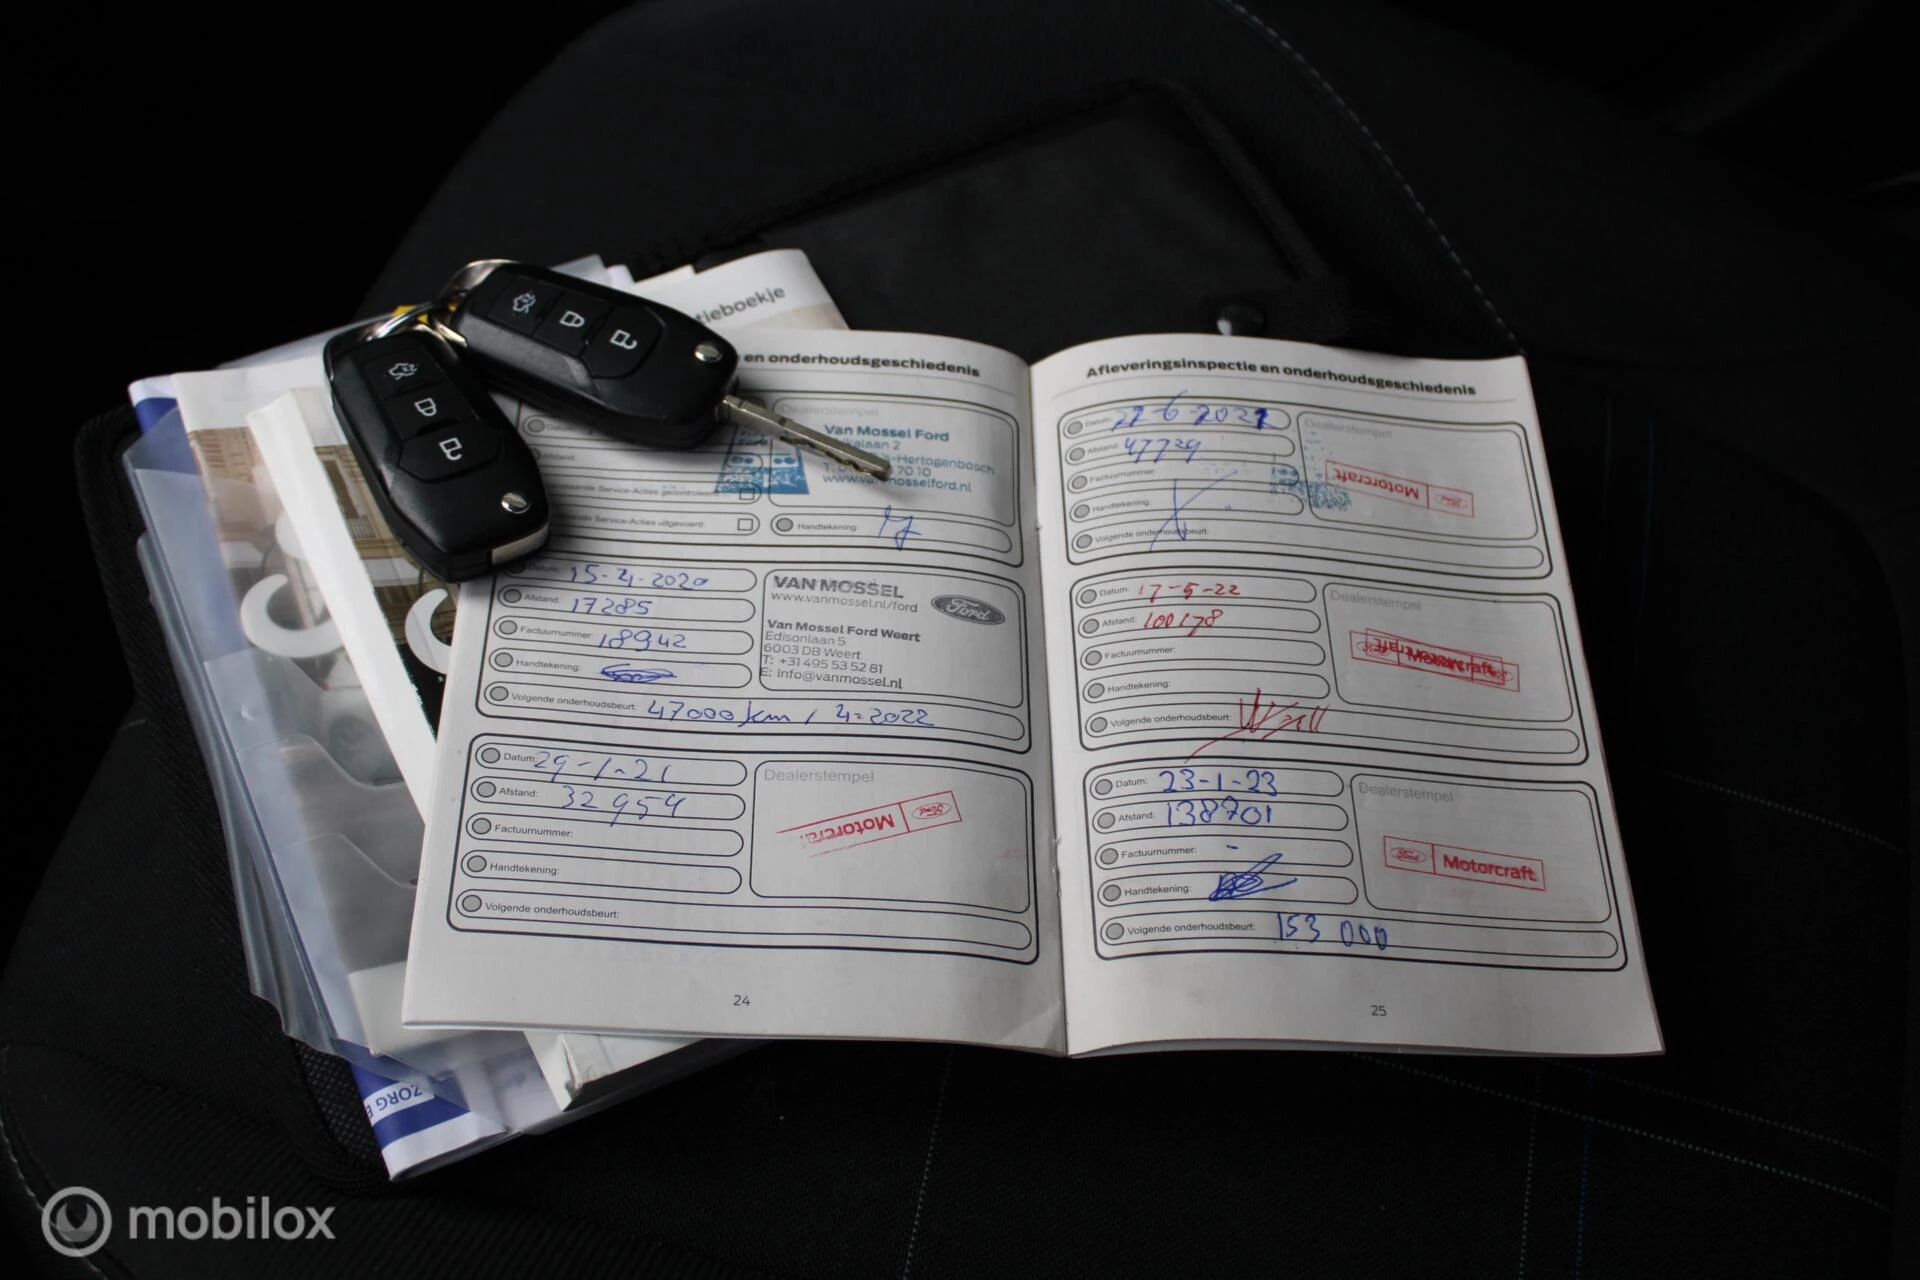 tieboekje
e en onderhoudsgeschiedenis
Datum:
Afstand:
Service-Acties gecontroleerd:
Service-Acties uitgevoerd:
Dealerstempel
Van Mossel Ford
's-Hertogenbosch
www.vanmosselford.nl
Handtekening:
Datum: 15-4-2020
Afstand: 17285
Factuurnummer: 18942
Handtekening:
Volgende onderhoudsbeurt: 47000 km / 4-2022
VAN MOSSEL
www.vanmossel.nl/ford
Ford
Van Mossel Ford Weert
Edisonlaan 5
6003 DB Weert
T: +31 495 53 52 81
E: info@vanmossel.nl
Datum: 29-1-21
Afstand: 32954
Factuurnummer:
Handtekening:
Volgende onderhoudsbeurt:
Dealerstempel
Motorcraft
Ford
24
Afleveringsinspectie en onderhoudsgeschiedenis
Datum: 22-6-2021
Afstand: 47729
Factuurnummer:
Handtekening:
Volgende onderhoudsbeurt:
Dealerstempel
Motorcraft
Ford
Datum: 17-5-22
Afstand: 100178
Factuurnummer:
Handtekening:
Volgende onderhoudsbeurt:
Dealerstempel
Motorcraft
Datum: 23-1-23
Afstand: 138701
Factuurnummer: -
Handtekening:
Volgende onderhoudsbeurt: 153 000
Dealerstempel
Ford
Motorcraft
25
ZORG
mobilox